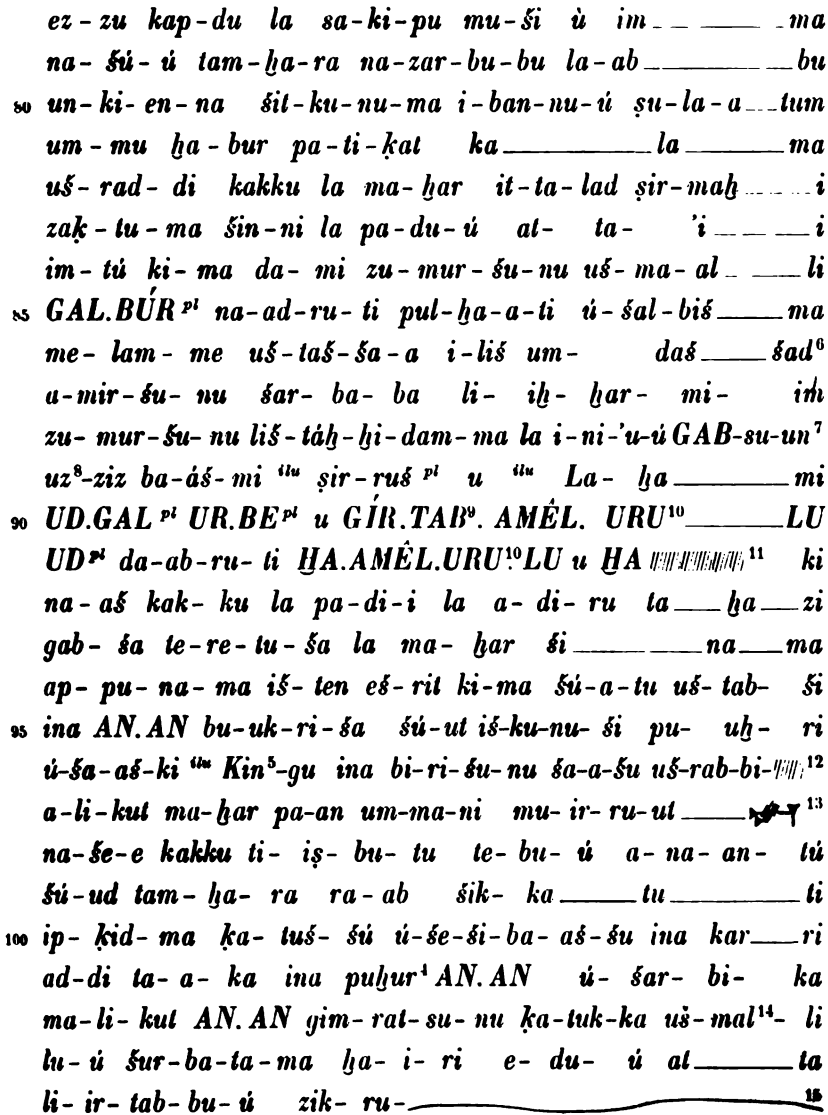 ez-zu kap-du la sa-ki-pu mu-ši ù im_ _ _ma
na-šú-ú tam-ḫa-ra na-zar-bu-bu la-ab_____bu
80 un-ki-en-na šit-ku-nu-ma i-ban-nu-ú ṣu-la-a_ _tum
um-mu ḫa-bur pa-ti-ḳat ka_____la_____ma
uš-rad-di kakku la ma-ḫar it-ta-lad ṣir-maḫ_ _ _i
zaḳ-tu-ma šin-ni la pa-du-ú at-ta-'i_ _ _i
im-tú ki-ma da-mi zu-mur-šu-nu uš-ma-al_ _li
85 GAL.BÚR pl na-ad-ru-ti pul-ḫa-a-ti ú-šal-biš___ma
me-lam-me uš-taš-ša-a i-liš um-daš___šad⁶
a-mir-šu-nu šar-ba-ba li-iḫ-ḫar-mi-im
zu-mur-šu-nu liš-táḫ-ḫi-dam-ma la i-ni-'u-ú GAB-su-un⁷
uz⁸-ziz ba-áš-mi ilu ṣir-ruš pl u ilu La-ḫa_____mi
90 UD.GAL pl UR.BE pl u GÍR.TAB⁹. AMÊL. URU¹⁰_____LU
UD pl da-ab-ru-ti ḪA.AMÊL.URU¹⁰.LU u ḪA ¹¹ ki
na-aš kak-ku la pa-di-i la a-di-ru ta__ḫa__zi
gab-ša te-re-tu-ša la ma-ḫar ši_____na__ma
ap-pu-na-ma iš-ten eš-rit ki-ma šú-a-tu uš-tab-ši
95 ina AN.AN bu-uk-ri-ša šú-ut iš-ku-nu-ši pu-uḫ-ri
ú-ša-aš-ki ilu Kin⁵-gu ina bi-ri-šu-nu ša-a-šu uš-rab-bi-¹²
a-li-kut ma-ḫar pa-an um-ma-ni mu-ir-ru-ut___¹³
na-še-e kakku ti-iṣ-bu-tu te-bu-ú a-na-an-tú
šú-ud tam-ḫa-ra ra-ab šik-ka___tu_____ti
100 ip-ḳid-ma ḳa-tuš-šú ú-še-ši-ba-aš-šu ina kar__ri
ad-di ta-a-ka ina puḫur⁴ AN.AN ú-šar-bi-ka
ma-li-kut AN.AN gim-rat-su-nu ḳa-tuk-ka uš-mal¹⁴-li
lu-ú šur-ba-ta-ma ḫa-i-ri e-du-ú at_____ta
li-ir-tab-bu-ú zik-ru-_____¹⁵